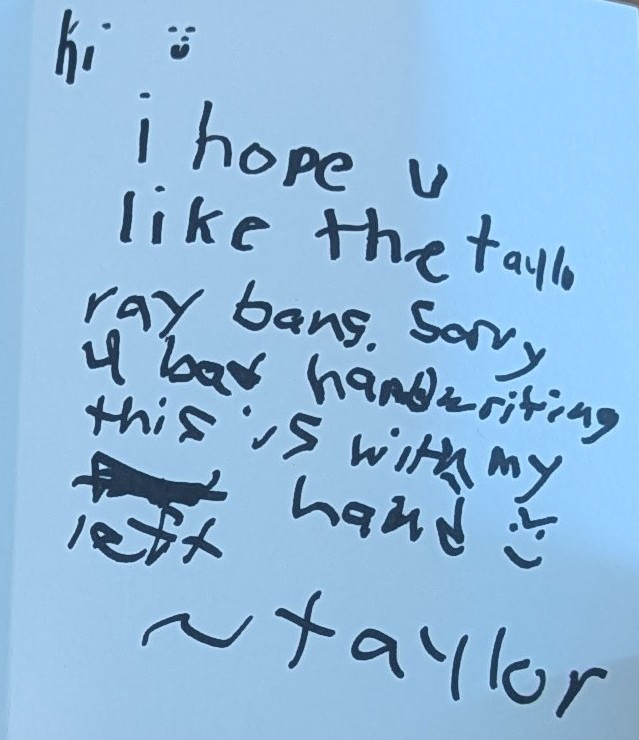 hi :)
i hope u
like the taylo
ray bans. Sorry
4 bad handwriting
this is with my
hand :)
left
~taylor